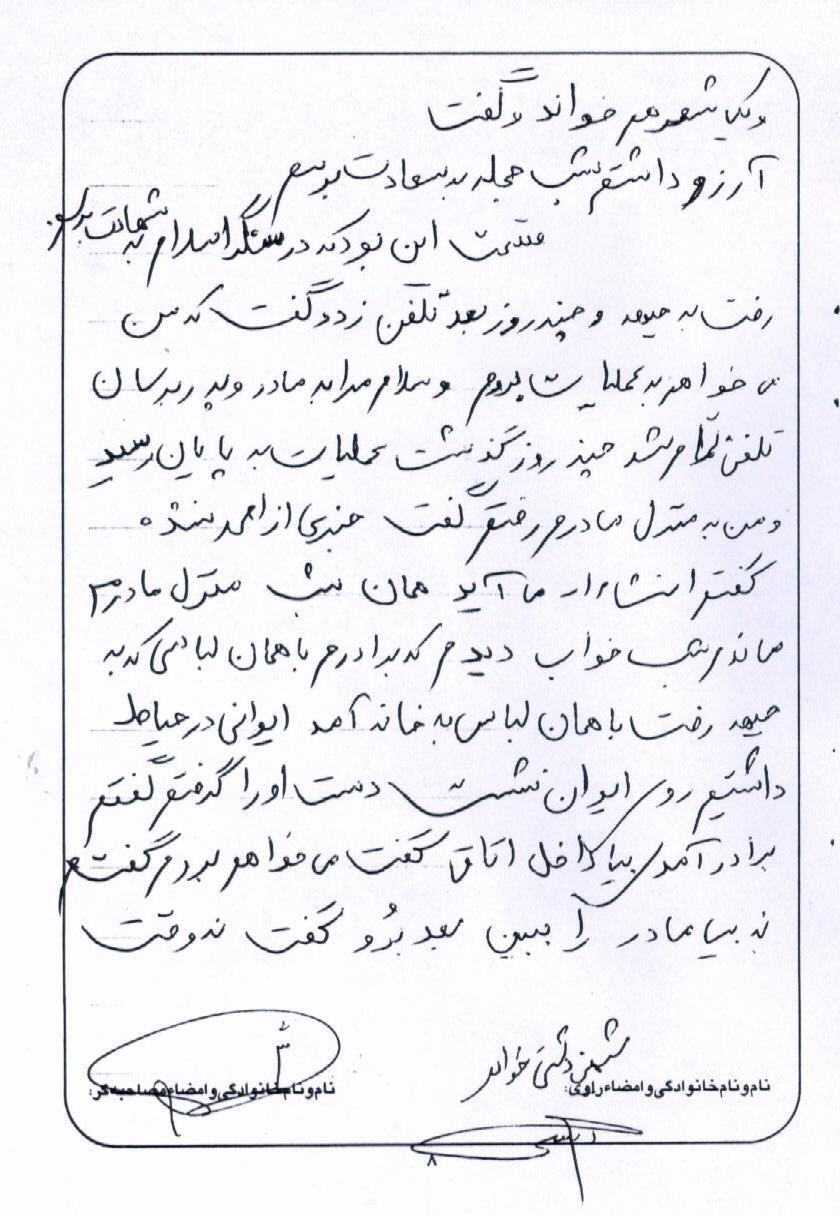 و یک شعر هم خواند و گفت
آرزو داشتم شب حجله به سعادت برسم
قسمت این بود که در سنگر اسلام به شهادت برسم
رفت به جبهه و چند روز بعد تلفن زد و گفت که من
می خواهم به عملیات بروم و سلام مرا به مادر و پدر برسان
تلفن تمام شد چند روز گذشت عملیات به پایان رسید
و من به منزل مادرم رفتم گفت خبری از احمد نشده
گفتم انشاءا.. می آید همان شب منزل مادرم
ماندم شب خواب دیدم که برادرم با همان لباسی که به
جبهه رفت با همان لباس به خانه آمد ایوانی در حیاط
داشتیم روی ایوان نشست دست او را گرفتم گفتم
برادر آمدی بیا داخل اتاق گفت می خواهم بروم گفتم
نه بیا مادر را ببین بعد بُرو گفت نه وقت
نام و نام خانوادگی و امضاء راوی:
نام و نام خانوادگی و امضاء مصاحبه گر:
۸